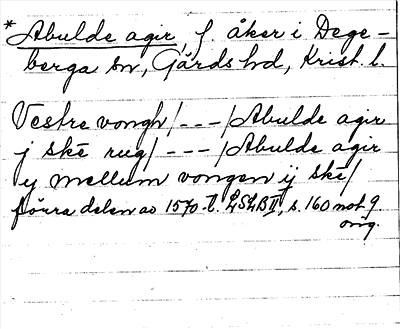 *Abulde agir, f. åker i Dege-
berga sn, Gärds hd, Krist. l.
Vestre vongh/---/Abulde agir
j skē rug/---/Abulde agir
ey mellum vongen ij skē/
södra delen av 1570-t. LSLB II, s. 160 not 9
orig.